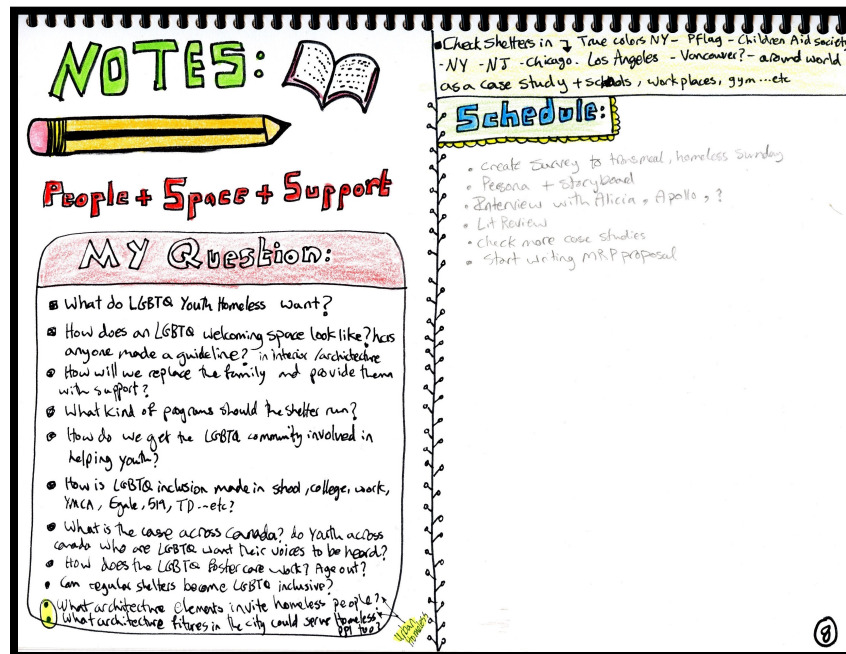 NOTES:
People + Space + Support
My Question:
What do LGBTQ Youth Homeless want?
How does an LGBTQ welcoming space look like? has
anyone made a guideline? in interior /architecture
How will we replace the family and provide them
with support?
What kind of programs should the shelter run?
How do we get the LGBTQ community involved in
helping youth?
How is LGBTQ inclusion made in shool, college, work,
YMCA, Egale, 519, TD...etc?
What is the case across Canada? do Youth across
canada who are LGBTQ want their voices to be heard?
How does the LGBTQ foster care work? Age out?
Can regular shelters become LGBTQ inclusive?
What architecture elements invite homeless people?
What architecture fitures in the city could serve Homeless
PPl too?
Urban
Homeless
Check Shelters in ↴ True colors NY - Pflag - Children Aid society
-NY -NJ -Chicago - Los Angeles - Vancouver? - around world
as a case study + schools, workplaces, gym ...etc
Schedule:
Create Survey to homeless Sunday
Persona + Storyboard
Interview with Alicia, Apollo, ?
Lit Review
check more case studies
Start writing MRP proposal
8